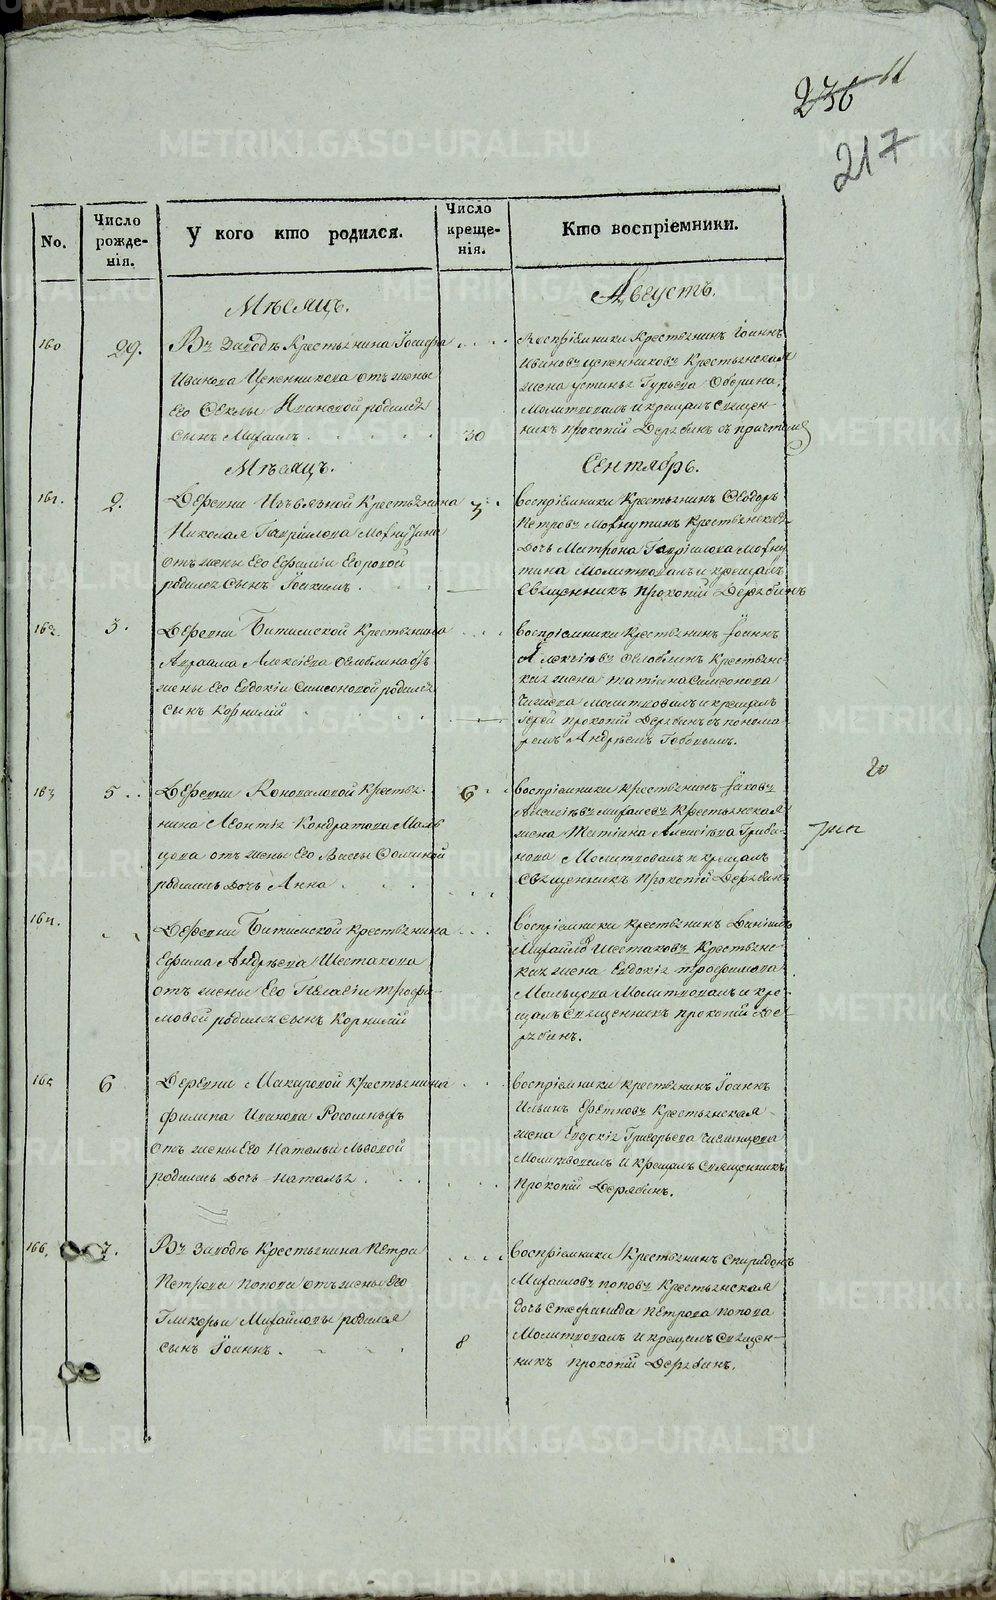 236 11
217
No.
Число рожде-нія.
У кого кто родился.
Число креще-нія.
Кто воспріемники.
Мѣсяцъ.
Августъ.
160
29.
Въ Заводѣ Крестьянина Іосифа
Иванова отъ жены
его Феклы родился
сынъ Михаилъ
30
Воспріемники Крестьянинъ Іоаннъ
Ивановъ Крестьянская
жена Устинья Гурьева
Молитвовалъ и крещалъ Священ-
никъ Прокопій Дерябинъ съ причтомъ
Мѣсяцъ.
Сентябрь.
161.
2.
Деревни Крестьянина
Николая Гавріилова Махнутина
отъ жены Его Ефиміи Егоровой
родился сынъ Іоакимъ.
3
Воспріемники Крестьянинъ Ѳеодоръ
Петровъ Махнутинъ Крестьянская
Дочь Матрона Гавріилова Махну
тина Молитвовалъ и крещалъ
Священникъ Прокопій Дерябинъ
162.
3.
Деревни Битимской Крестьянина
Авраама Алексіева отъ
жены Его Евдокіи Симеоновой родился
сынъ Корнилій
Воспріемники Крестьянинъ Іоаннъ
Алексіевъ Крестьянс-
кая жена Татіана Симеонова
молитвовалъ и крещалъ
Іерей Прокопій Дерябинъ съ понома
ремъ Андреемъ
163
5
Деревни Коноваловой Крестья-
нина Леонтія Кондратова Маль
цова отъ жены Его
родилась Дочь Анна
6
Воспріемники Крестьянинъ Іаковъ
Крестьянская
жена Татіана Алексіева
Молитвовалъ и крещалъ
Священникъ Прокопій Дерябинъ
20
164.
Деревни Битимской Крестьянина
Ефима Андреева Шестакова
отъ жены Его Пелагіи Трофи-
мовой родился сынъ Корнилій
Воспріемники Крестьянинъ Даніилъ
Михайловъ Шестаковъ Крестьянс-
кая жена Евдокія Трофимова
Мальцова Молитвовалъ и кре-
щалъ Священникъ Прокопій Дер-
ябинъ.
165
6
Деревни Макаровой Крестьянина
Филипа Иванова
отъ жены Его Натальи Львовой
родилась Дочь Наталья
Воспріемники Крестьянинъ Іоаннъ
Ильинъ Крестьянская
жена Евдокія Григорьева
Молитвовалъ и Крещалъ Священникъ
Прокопій Дерябинъ.
166.
7.
Въ Заводѣ Крестьянина Петра
Петрова Попова отъ жены Его
Гликерьи Михайловы родился
сынъ Іоаннъ.
8
Воспріемники Крестьянинъ Спиридонъ
Михайловъ Поповъ Крестьянская
дочь Стефанида Петрова Попова
Молитвовалъ и крещалъ Священ-
никъ Прокопій Дерябинъ.
METRIKI.GASO-URAL.RU